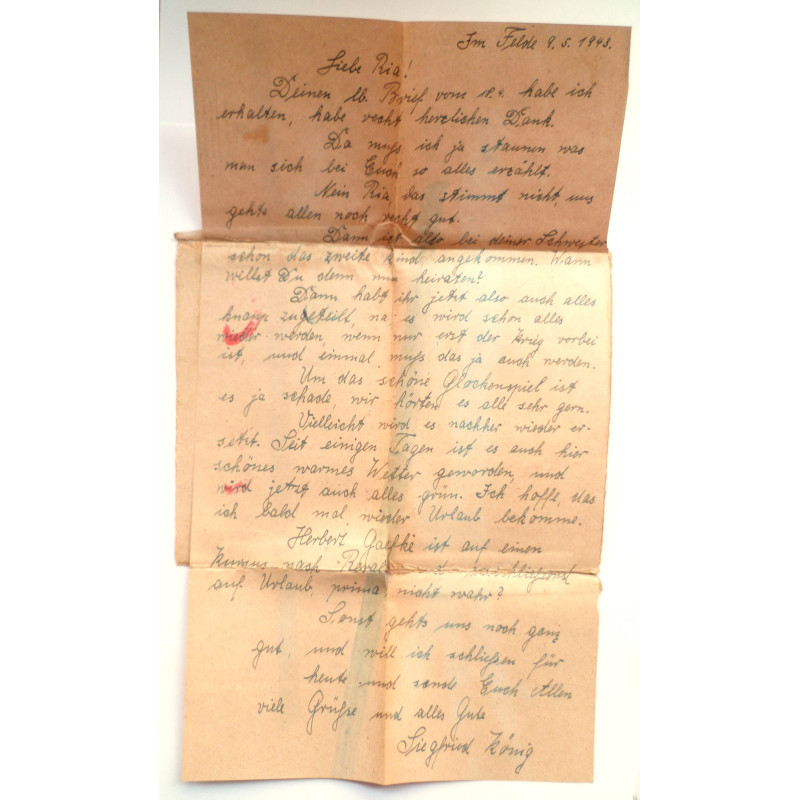 Im Felde 9.5.1943.
Liebe Ria!
Deinen lb. Brief vom 18.4. habe ich
erhalten, habe recht herzlichen Dank.
Da muß ich ja staunen was
man sich bei Euch so alles erzählt.
Nein Ria das stimmt nicht, uns
gehts allen noch recht gut.
Dann ist also bei deiner Schwester
schon das zweite Kind angekommen. Wann
willst Du denn nun heiraten?
Dann habt ihr jetzt also auch alles
knapp zugeteilt, na es wird schon alles
wieder werden, wenn nur erst der Krieg vorbei
ist, und einmal muß das ja auch werden.
Um das schöne Glockenspiel ist
es ja schade, wir hörten es alle sehr gern.
Vielleicht wird es nachher wieder er-
setzt. Seit einigen Tagen ist es auch hier
schönes warmes Wetter geworden, und
wird jetzt auch alles grün. Ich hoffe, das
ich bald mal wieder Urlaub bekomme.
Herbert ist auf einen
Kursus nach anschließend
auf Urlaub, prima nicht wahr?
Sonst gehts uns noch ganz
gut, und will ich schließen für
heute und sende Euch Allen
viele Grüße und alles Gute
Siegfried König